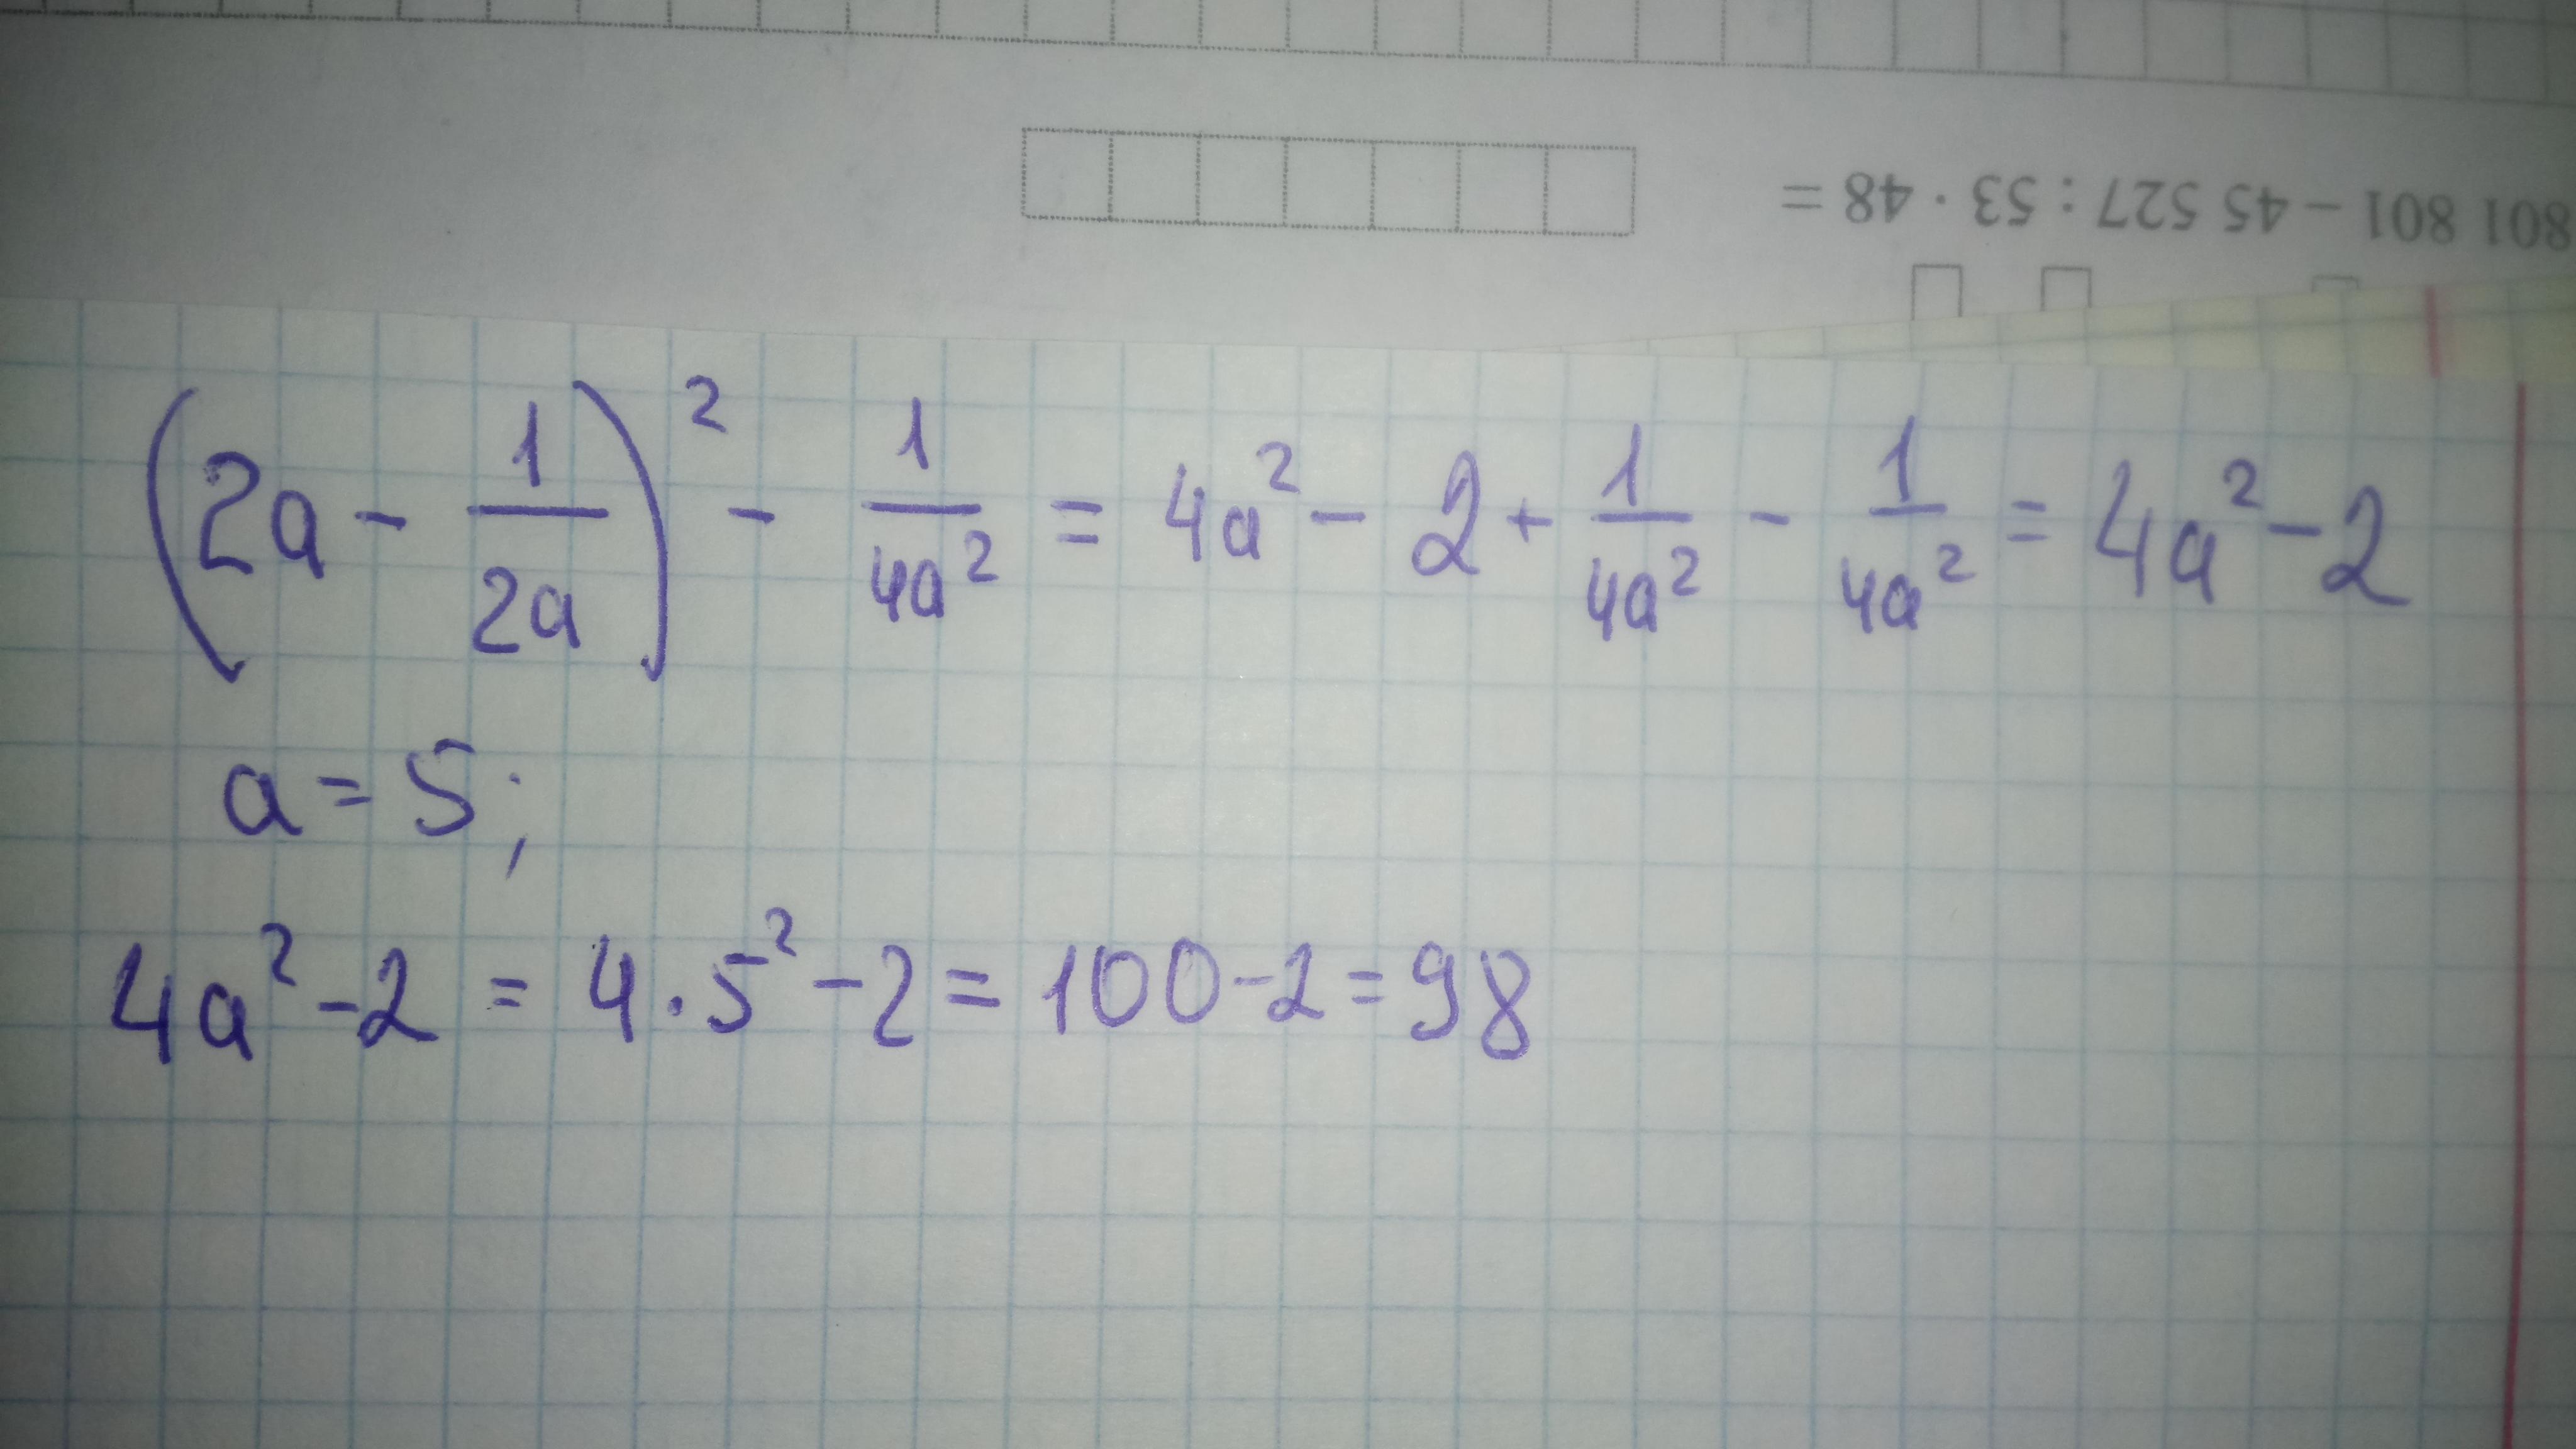 801 801 – 45 527 : 53 · 48 =
(2a - 1/2a)² - 1/4a² = 4a² - 2 + 1/4a² - 1/4a² = 4a² - 2
a = 5;
4a² - 2 = 4 · 5² - 2 = 100 - 2 = 98